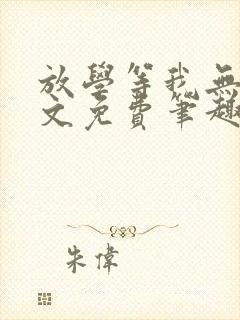 放學等我無
文免費筆趣
朱偉